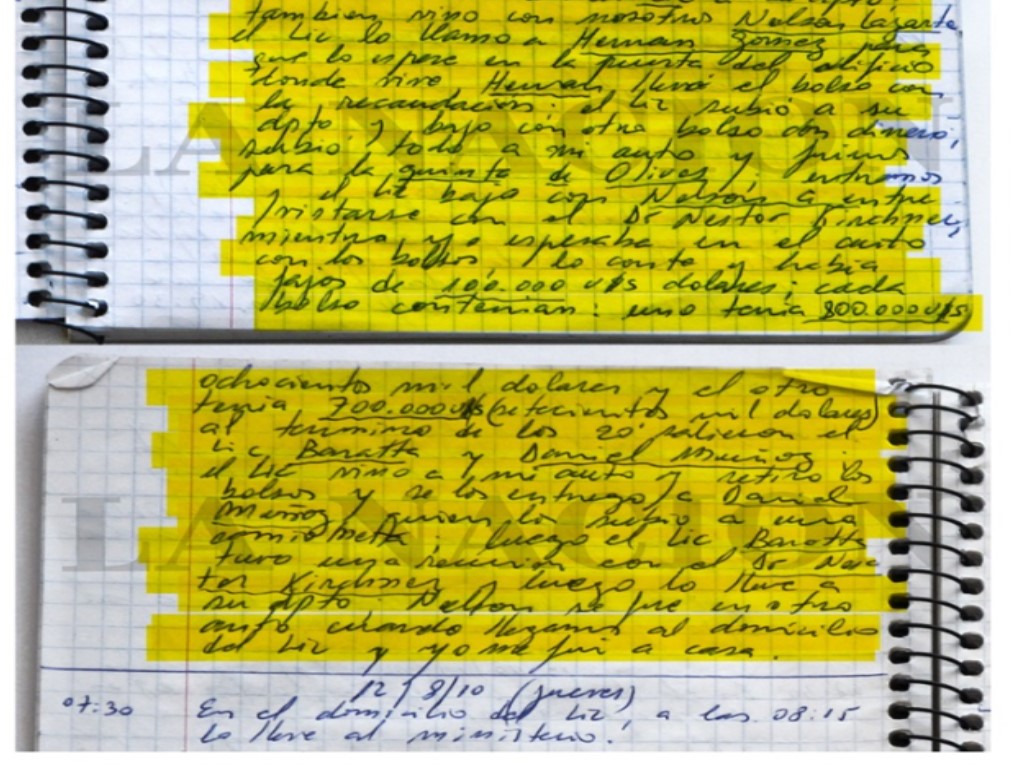 tambien vino con nosotros Nelson Lazarte
el Lic lo llamo a Hernan Gomez para
que lo espere en la puerta del edificio
donde vive Hernan, llevó el bolso con
la recaudación: el Lic subió a su
dpto y bajo con otro bolso con dinero,
subio todo a mi auto y fuimos
para la quinta de Olivos; entramos
y el Lic bajo con Nelson a entre
vistarse con el Dr Nestor Kirchner,
mientras yo esperaba en el auto
con los bolsos, lo conte y habia
fajos de 100.000 U$S dolares; cada
bolso contenian: uno tenia 800.000 U$S
ochocientos mil dolares y el otro
tenia 700.000 U$S (setecientos mil dolares)
al termino de los 20' salieron el
Lic Baratta y Daniel Muñoz.
el Lic vino a mi auto y retiro los
bolsos y se los entrego a Daniel
Muñoz quien los subio a una
camioneta; luego el Lic Baratta
tuvo una reunion con el Dr Nes
tor Kirchner y luego lo lleve a
su dpto, Nelson se fue en otro
auto cuando llegamos al domicilio
del Lic y yo me fui a casa.
12/8/10 (jueves)
07:30 En el domicilio del Lic, a las 08:15
Lo lleve al ministerio.
LA NACION
LA NACION